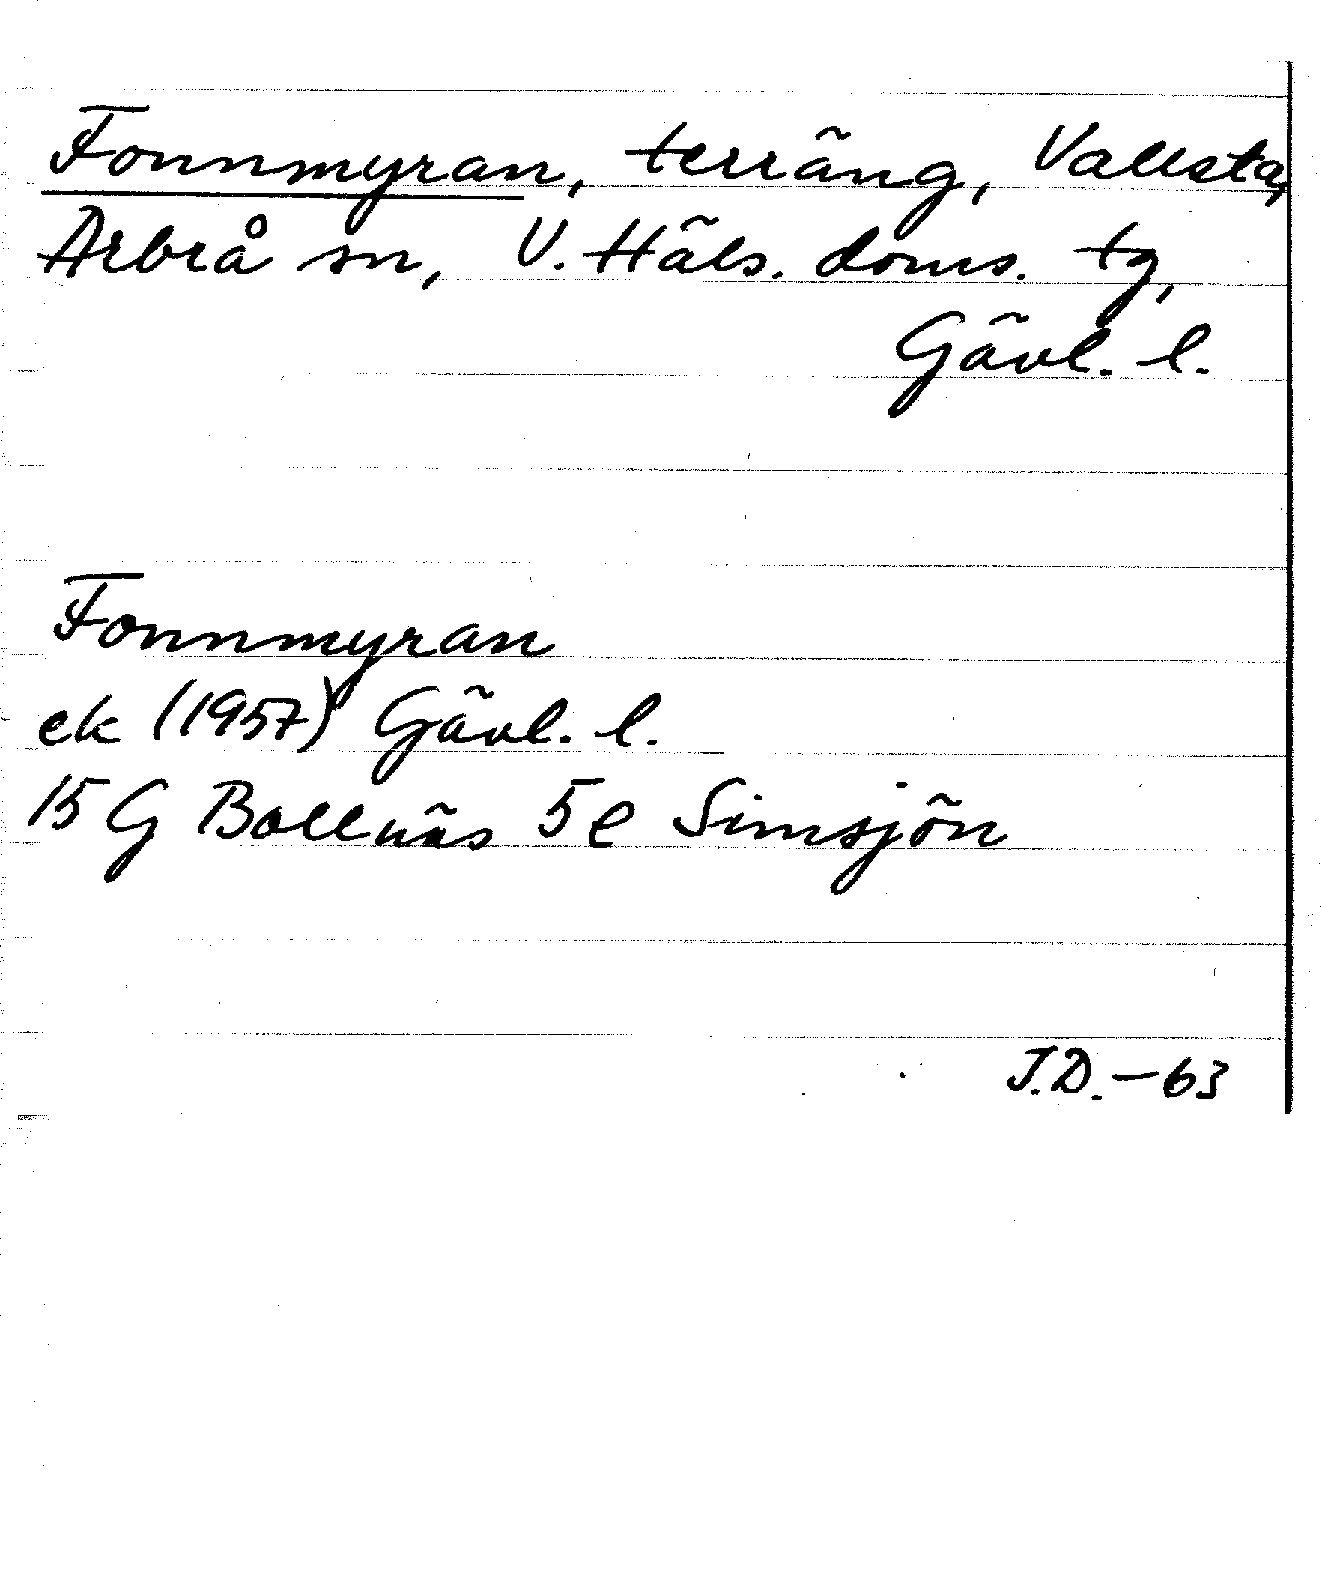 Fonnmyran, terräng, Vallsta,
Arbrå sn, V. Häls. doms. tg,
Gävl. l.
Fonnmyran
ek (1957) Gävl. l.
15 G Bollnäs 5 e Simsjön
J.D. – 63